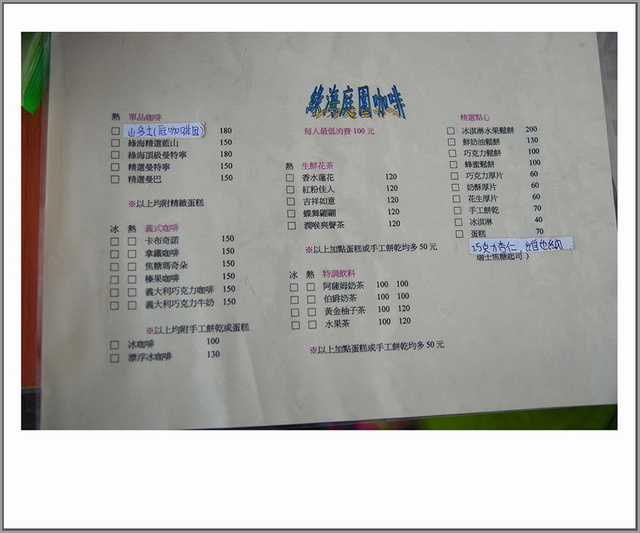 綠海庭園咖啡
每人最低消費 100 元
熱 單品咖啡
(庄咖啡园) 180
綠海精選藍山 150
綠海頂級曼特寧 180
精選曼特寧 150
精選曼巴 150
※以上均附精緻蛋糕
冰 熱 義式咖啡
卡布奇諾 150
拿鐵咖啡 150
焦糖瑪奇朵 150
榛果咖啡 150
義大利巧克力咖啡 150
義大利巧克力牛奶 150
※以上均附手工餅乾或蛋糕
冰咖啡 100
漂浮冰咖啡 130
熱 生鮮花茶
香水蓮花 120
紅粉佳人 120
吉祥如意 120
蝶舞翩翩 120
潤喉爽聲茶 120
※以上加點蛋糕或手工餅乾均多 50 元
冰 熱 特調飲料
阿薩姆奶茶 100 100
伯爵奶茶 100 100
黃金柚子茶 100 120
水果茶 100 120
※以上加點蛋糕或手工餅乾均多 50 元
精選點心
冰淇淋水果鬆餅 200
鮮奶油鬆餅 130
巧克力鬆餅 100
蜂蜜鬆餅 100
巧克力厚片 60
奶酥厚片 60
花生厚片 60
手工餅乾 70
冰淇淋 40
蛋糕 70
巧克力杏仁,
瑞士焦糖起司 )